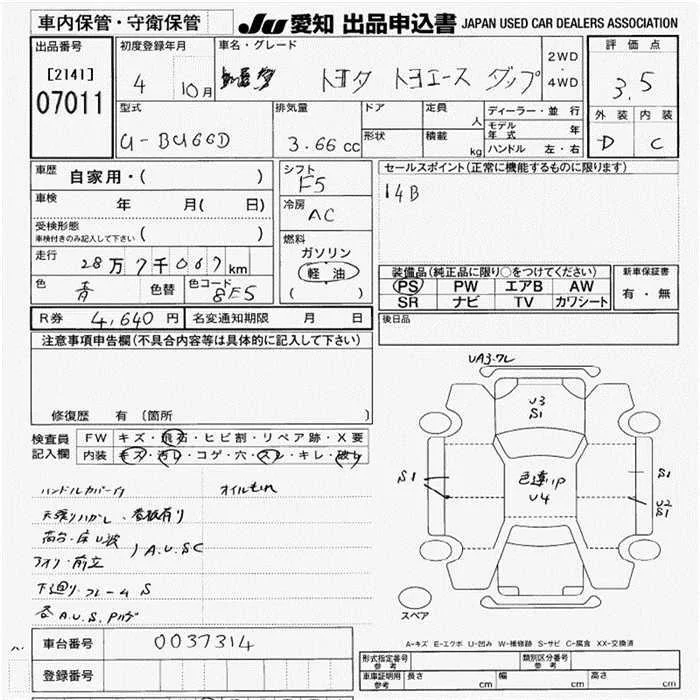 車内保管・守衛保管
JU 愛知 出品申込書 JAPAN USED CAR DEALERS ASSOCIATION
出品番号
[2141]
07011
初度登録年月
4 10月
車名・グレード
トヨタ トヨエース ダンプ
2WD
・
4WD
評価点
3.5
外装 内装
D C
型式
U-BU66D
排気量
3.66 cc
ドア
形状
定員
人
積載
kg
ディーラー・並行
モデル年式 年
ハンドル 左・右
車歴 自家用・( )
車検 年 月( 日)
受検形態
車検付きのみ記入して下さい ( )
走行 28万7千067km
色 青 色替 色コード 8E5
シフト
F5
冷房
AC
燃料
ガソリン
軽油
( )
セールスポイント(正常に機能するものに限ります)
14B
装備品(純正品に限り○をつけてください)
PS PW エアB AW
SR ナビ TV カワシート
新車保証書
有・無
R券 4,640円 名変通知期限 月 日
後日品
注意事項申告欄(不具合内容等は具体的に記入して下さい)
修復歴 有 (箇所 )
検査員記入欄
FW キズ・飛石・ヒビ割・リペア跡・X要
内装 キズ・汚レ・コゲ・穴・スレ・キレ・破レ
ハンドルカバー付
オイルもれ
天張りはがし、看板有り
荷台・床U波
アオリ・前立
)A.U.S.C
下廻り・フレームS
各A.U.S.
UA3.ワレ
U3
S1
S1
色違いP
U4
S1
U2
S1
スペア
A-キズ E-エクボ U-凹み W-補修跡 S-サビ C-腐食 XX-交換済
車台番号 0037314
登録番号
形式指定番号参考
類別区分番号参考
車庫証明用参考 長さ cm 幅 cm 高さ cm